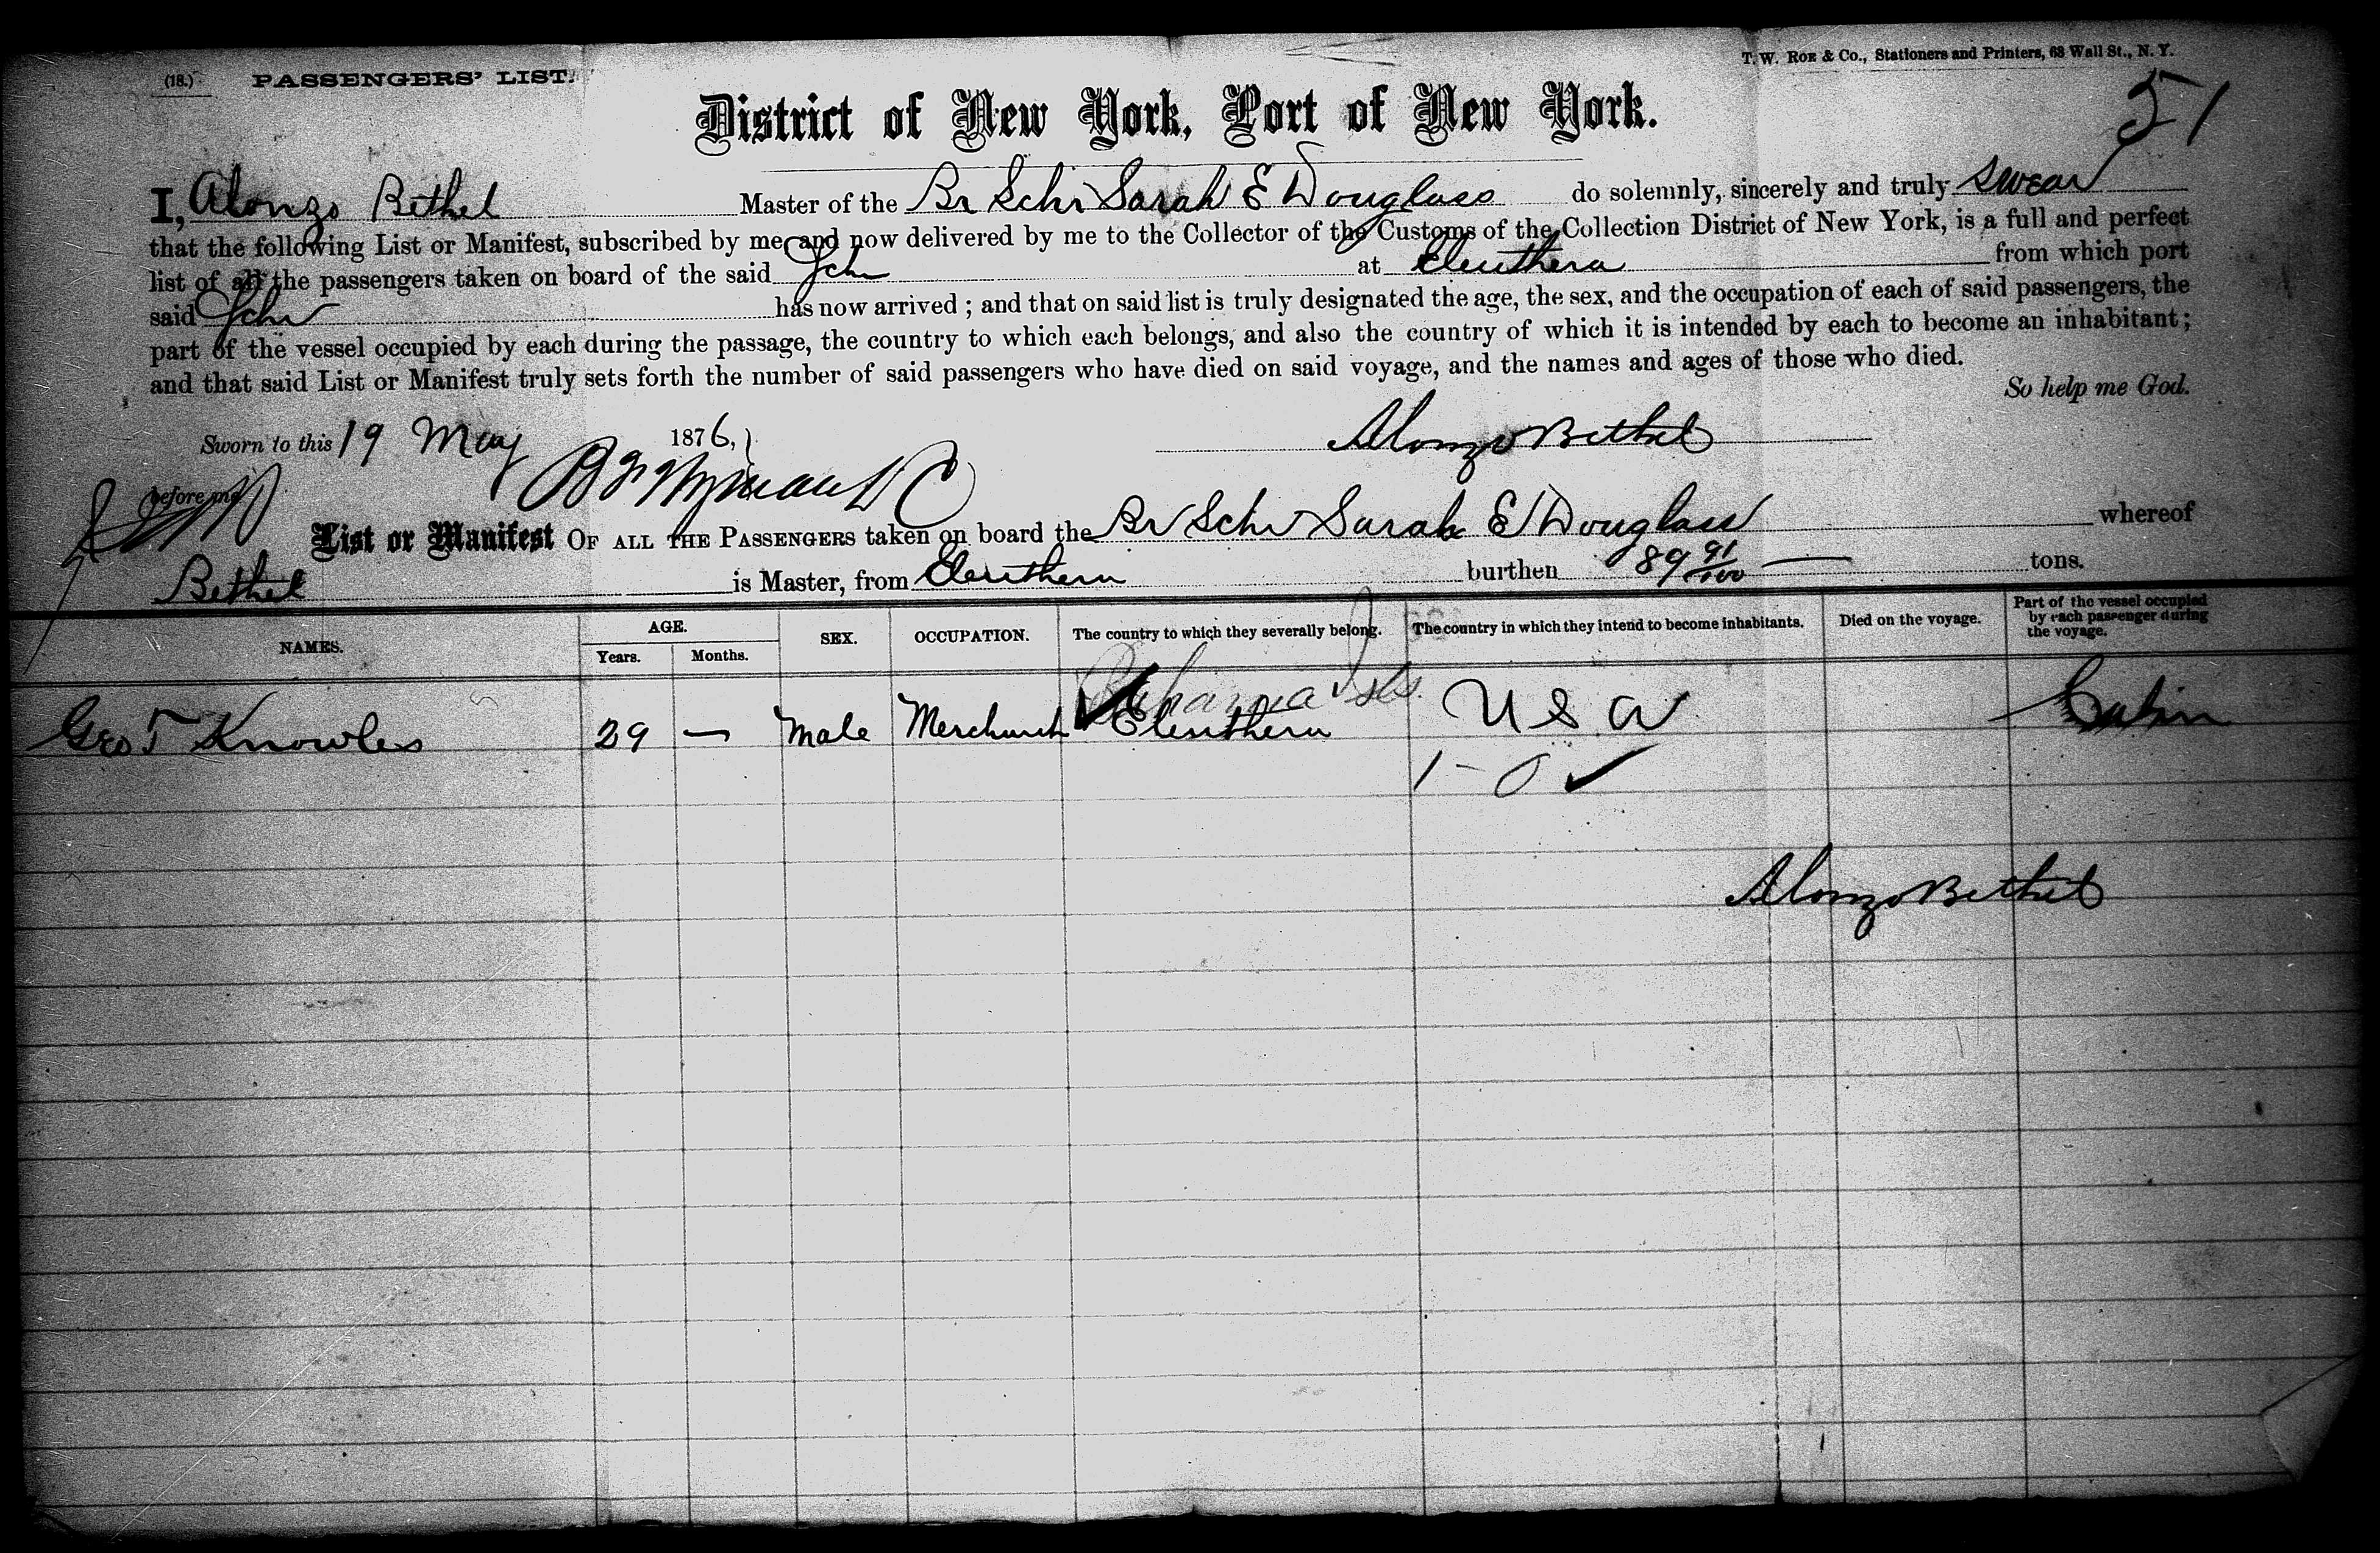 (18.) PASSENGERS' LIST.
T. W. ROE & Co., Stationers and Printers, 63 Wall St., N. Y.
51
District of New York, Port of New York.
I, Alonzo Bethel Master of the Br Schr Sarah E Douglass do solemnly, sincerely and truly swear
that the following List or Manifest, subscribed by me and now delivered by me to the Collector of the Customs of the Collection District of New York, is a full and perfect
list of all the passengers taken on board of the said Schr at Eleuthera from which port
said Schr has now arrived ; and that on said list is truly designated the age, the sex, and the occupation of each of said passengers, the
part of the vessel occupied by each during the passage, the country to which each belongs, and also the country of which it is intended by each to become an inhabitant ;
and that said List or Manifest truly sets forth the number of said passengers who have died on said voyage, and the names and ages of those who died.
So help me God.
Sworn to this 19 May 1876,
Alonzo Bethel
before me
List or Manifest OF ALL THE PASSENGERS taken on board the Br Schr Sarah E Douglass whereof
Bethel is Master, from Eleuthera burthen 89 91/100 tons.
NAMES. AGE. Years. Months. SEX. OCCUPATION. The country to which they severally belong. The country in which they intend to become inhabitants. Died on the voyage. Part of the vessel occupied by each passenger during the voyage.
Bahama Isls.
Geo T Knowles 29 — Male Merchant Eleuthera U S A Cabin
1 - 0 ✓
Alonzo Bethel